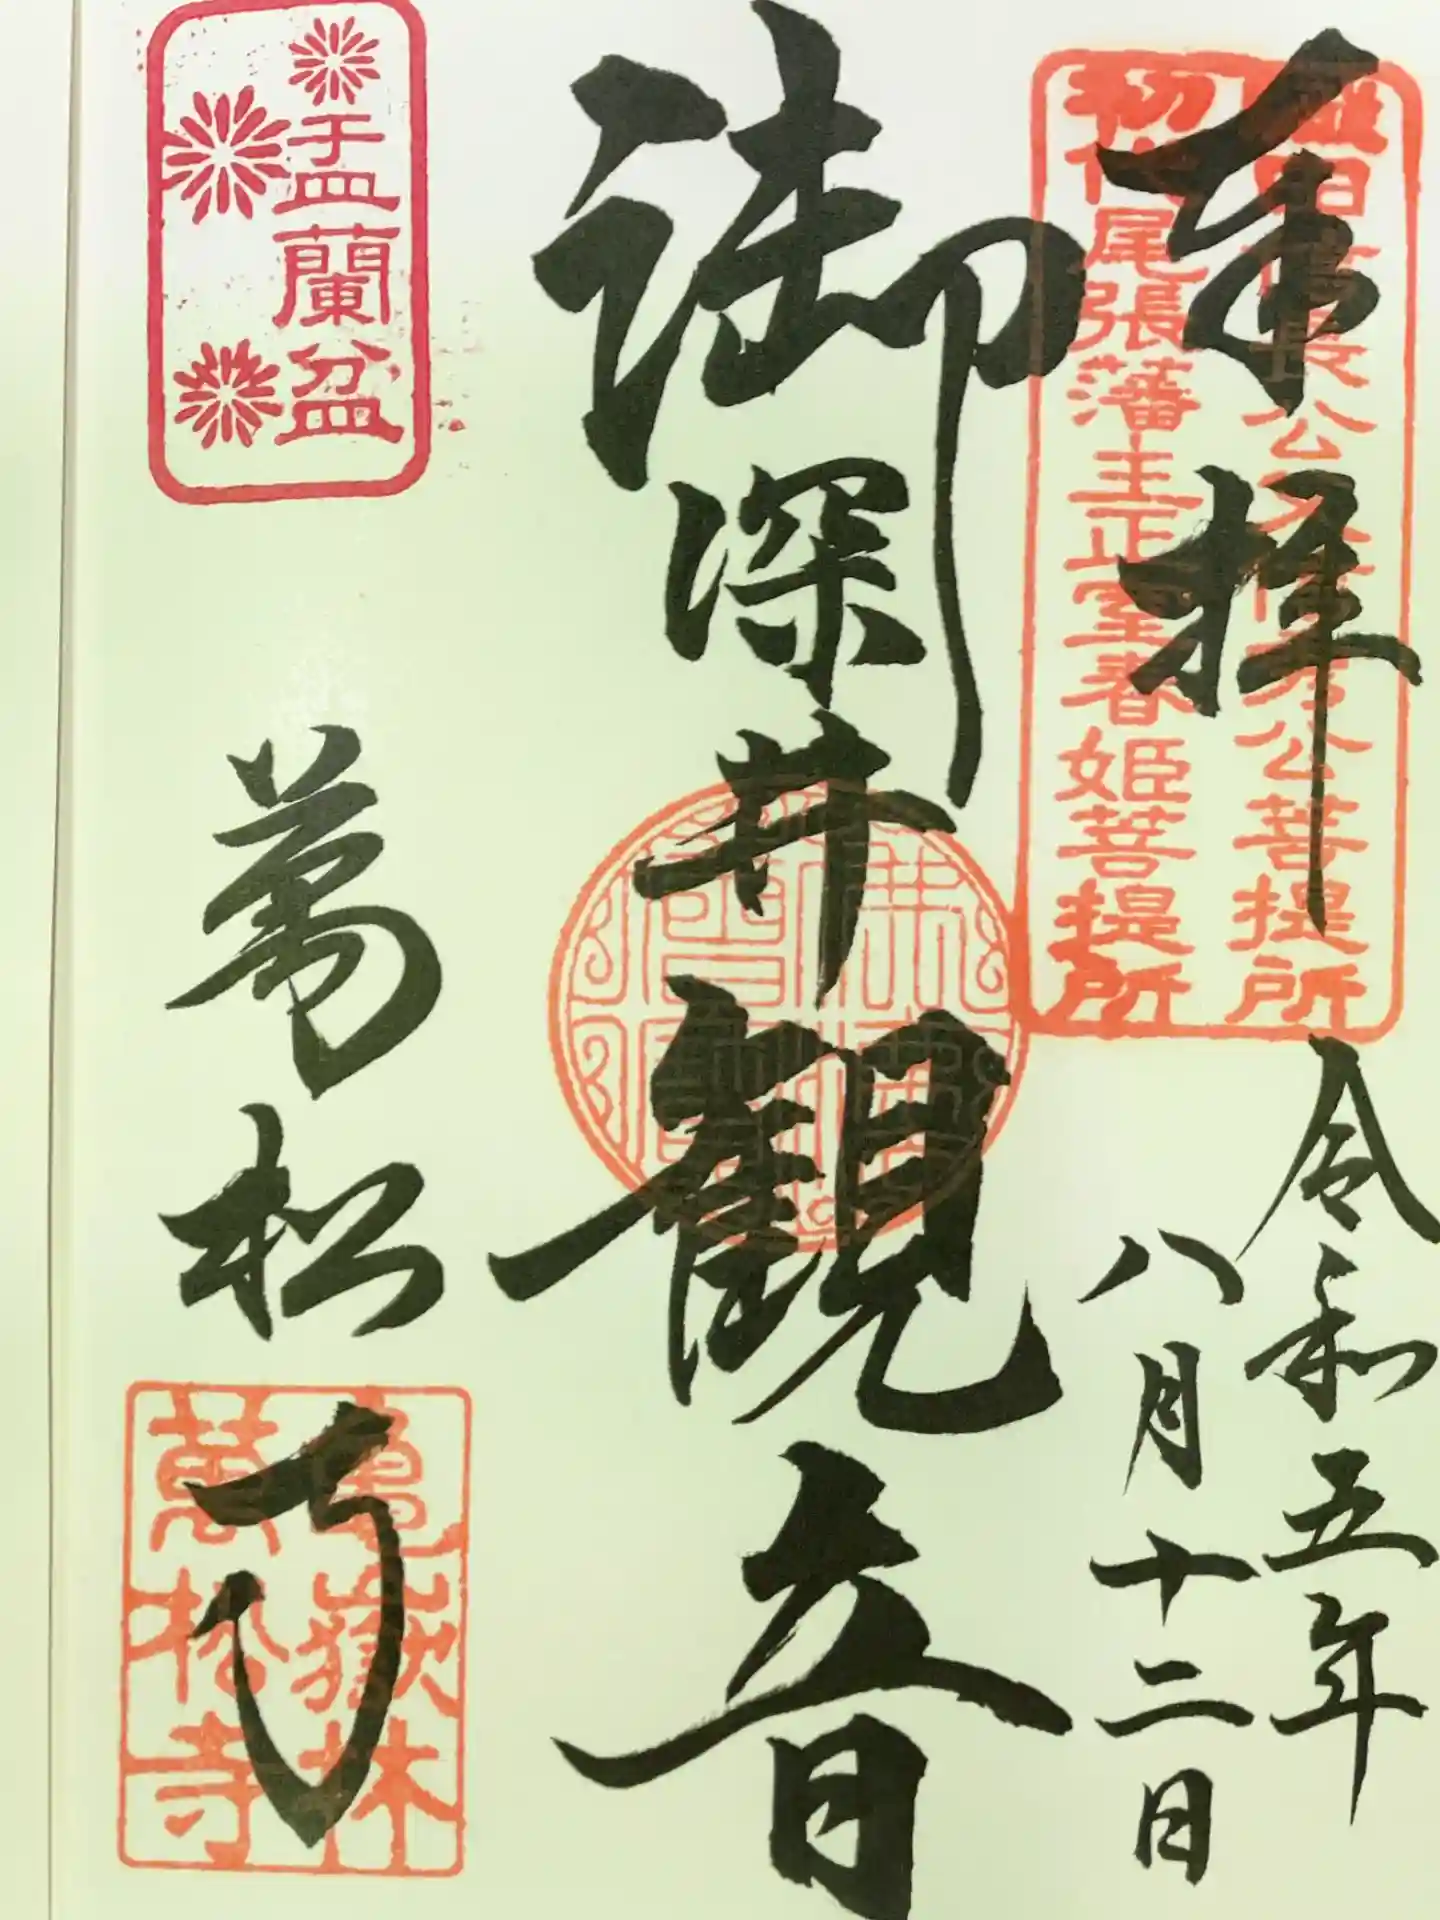 奉拝
織田信長公父信秀公菩提所
初代尾張藩主正室春姫菩提所
令和五年
八月十二日
御深井観音
盂蘭盆
萬松寺
亀嶽林
萬松寺